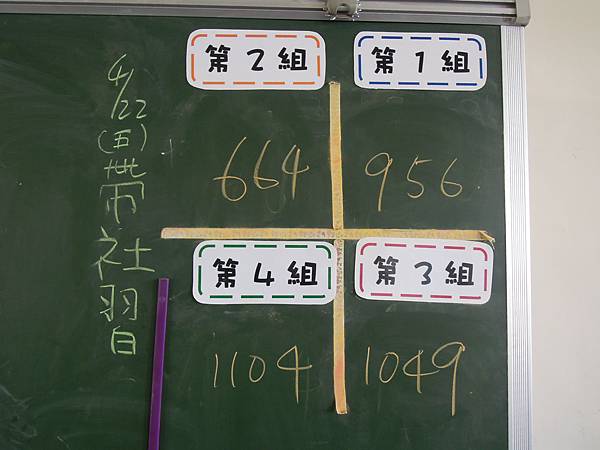 4/22
(五)
帶
社
習
第2組
第1組
664
956
第4組
第3組
1104
1049